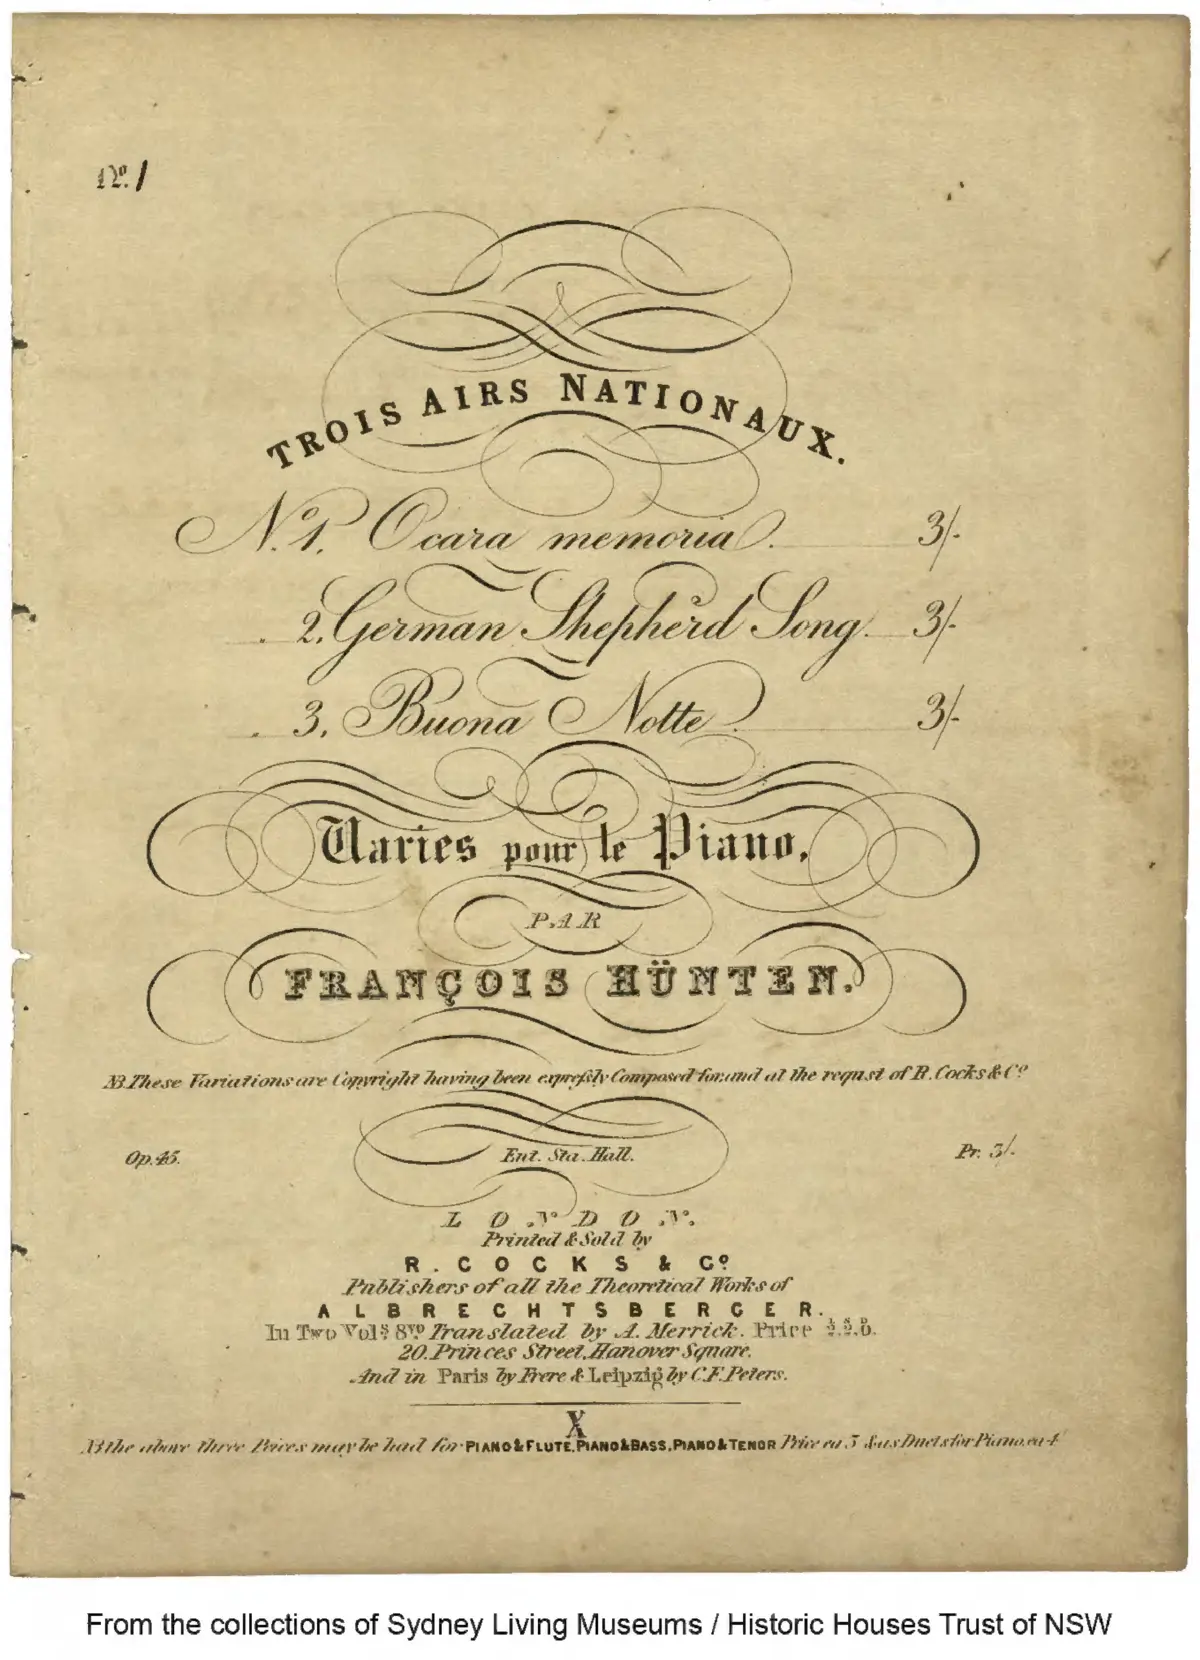 No. 1
TROIS AIRS NATIONAUX.
No. 1. O cara memoria. 3/-
2. German Shepherd Song. 3/-
3. Buona Notte. 3/-
Varies pour le Piano,
PAR
FRANÇOIS HÜNTEN.
NB These Variations are Copyright having been expressly Composed for, and at the requst of R. Cocks & Co.
Op. 45. Ent. Sta. Hall. Pr. 3/-
LONDON.
Printed & Sold by
R. COCKS & Co.
Publishers of all the Theoretical Works of
ALBRECHTSBERGER.
In Two Vols. 8vo Translated by A. Merrick. Price
20. Princes Street, Hanover Square.
And in Paris by Frere & Leipzig by C.F. Peters.
X
NB the above three Pieces may be had for PIANO & FLUTE, PIANO & BASS, PIANO & TENOR Price ea 3 & as Duets for Piano. ea 4
From the collections of Sydney Living Museums / Historic Houses Trust of NSW